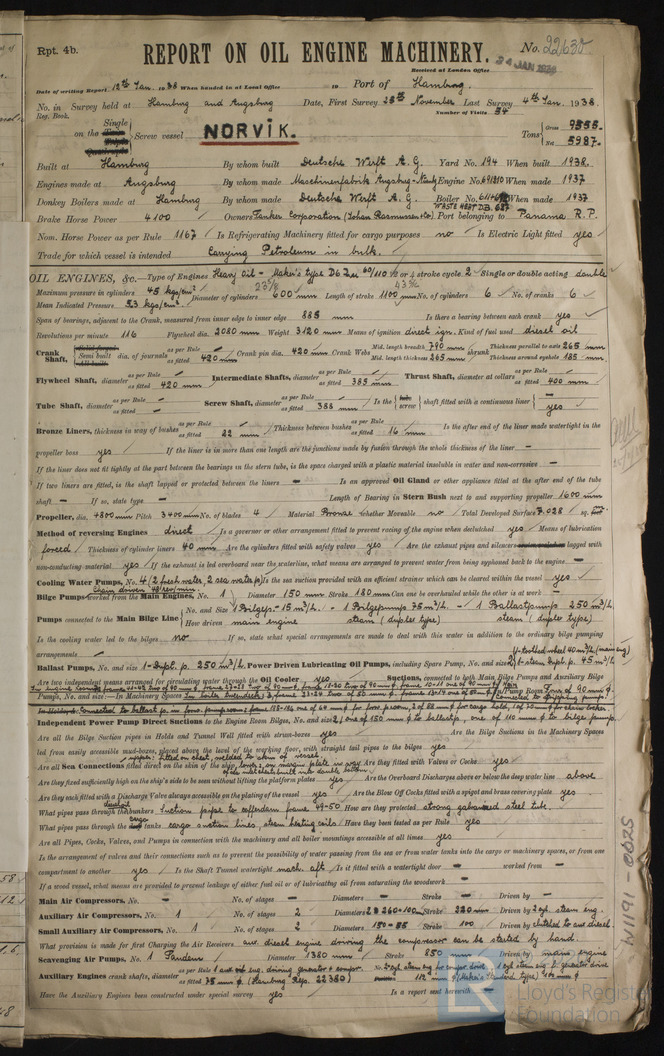 Rpt. 4b.
REPORT ON OIL ENGINE MACHINERY.
No. 22632
Received at London Office 24 JAN 1938
Date of writing Report 12th Jan. 1938 When handed in at Local Office 19 Port of Hamburg.
No. in Survey held at Hamburg and Augsburg Date, First Survey 28th November Last Survey 4th Jan. 1938.
Reg. Book. Number of Visits 54
on the Single Screw vessel NORVIK. Tons Gross 9555. Net 5987.
Built at Hamburg By whom built Deutsche Werft A.G. Yard No. 194 When built 1938.
Engines made at Augsburg By whom made Maschinenfabrik Engine No. When made 1937
Donkey Boilers made at Hamburg By whom made Deutsche Werft A.G. Boiler No. When made 1937
Brake Horse Power 4100 Owners Tanker Corporation (Johan Rasmussen & Co) Port belonging to Panama R.P.
Nom. Horse Power as per Rule 1167 Is Refrigerating Machinery fitted for cargo purposes no Is Electric Light fitted yes
Trade for which vessel is intended Carrying Petroleum in bulk.
OIL ENGINES, &c.— Type of Engines Heavy oil - 2 or 4 stroke cycle 2 Single or double acting double
Maximum pressure in cylinders 45 kgs/cm² Diameter of cylinders 600 mm Length of stroke 1100 mm No. of cylinders 6 No. of cranks 6
Mean Indicated Pressure 5.3 kgs/cm²
Span of bearings, adjacent to the Crank, measured from inner edge to inner edge 885 mm Is there a bearing between each crank yes
Revolutions per minute 116 Flywheel dia. 2080 mm Weight 3120 kgs Means of ignition direct ign. Kind of fuel used diesel oil
Crank Shaft, dia. of journals as per Rule as fitted 420 mm Crank pin dia. 420 mm Crank Webs Mid. length breadth 790 mm Mid. length thickness 265 mm shrunk Thickness parallel to axis 265 mm Thickness around eyehole 185 mm
Flywheel Shaft, diameter as per Rule as fitted 420 mm Intermediate Shafts, diameter as per Rule as fitted 385 mm Thrust Shaft, diameter at collars as per Rule as fitted 400 mm
Tube Shaft, diameter as per Rule as fitted - Screw Shaft, diameter as per Rule as fitted 388 mm Is the screw shaft fitted with a continuous liner yes
Bronze Liners, thickness in way of bushes as per Rule as fitted 22 mm Thickness between bushes as per Rule as fitted 16 mm Is the after end of the liner made watertight in the
propeller boss yes If the liner is in more than one length are the junctions made by fusion through the whole thickness of the liner -
If the liner does not fit tightly at the part between the bearings on the stern tube, is the space charged with a plastic material insoluble in water and non-corrosive -
If two liners are fitted, is the shaft lapped or protected between the liners - Is an approved Oil Gland or other appliance fitted at the after end of the tube
shaft - If so, state type - Length of Bearing in Stern Bush next to and supporting propeller 1600 mm
Propeller, dia. 4800 mm Pitch 3400 mm No. of blades 4 Material Bronze whether Moveable no Total Developed Surface 7.028 sq.
Method of reversing Engines direct Is a governor or other arrangement fitted to prevent racing of the engine when declutched yes Means of lubrication
forced Thickness of cylinder liners 40 mm Are the cylinders fitted with safety valves yes Are the exhaust pipes and silencers lagged with
non-conducting material yes If the exhaust is led overboard near the waterline, what means are arranged to prevent water from being syphoned back to the engine -
Cooling Water Pumps, No. 4 (2 fresh water, 2 sea water p.) Is the sea suction provided with an efficient strainer which can be cleared within the vessel yes
Bilge Pumps worked from the Main Engines, No. 1 Diameter 150 mm Stroke 180 mm Can one be overhauled while the other is at work -
Pumps connected to the Main Bilge Line No. and Size 1 Bilgep. - 15 m³/h. - 1 Bilgepumps 75 m³/h. - 1 Ballastpumps 250 m³/h
How driven main engine steam (duplex type) steam (duplex type)
Is the cooling water led to the bilges no If so, state what special arrangements are made to deal with this water in addition to the ordinary bilge pumping
arrangements -
Ballast Pumps, No. and size 1 - Dupl. p. 250 m³/h. Power Driven Lubricating Oil Pumps, including Spare Pump, No. and size
Are two independent means arranged for circulating water through the Oil Cooler yes Suctions, connected to both Main Bilge Pumps and Auxiliary Bilge
Pumps, No. and size:—In Machinery Spaces In Pump Room
Independent Power Pump Direct Suctions to the Engine Room Bilges, No. and size 2, one of 150 mm ϕ to ballastp., one of 110 mm ϕ to bilge pump.
Are all the Bilge Suction pipes in Holds and Tunnel Well fitted with strum-boxes yes Are the Bilge Suctions in the Machinery Spaces
led from easily accessible mud-boxes, placed above the level of the working floor, with straight tail pipes to the bilges yes
Are all Sea Connections fitted direct on the skin of the ship Are they fitted with Valves or Cocks yes
Are they fixed sufficiently high on the ship's side to be seen without lifting the platform plates yes Are the Overboard Discharges above or below the deep water line above
Are they each fitted with a Discharge Valve always accessible on the plating of the vessel yes Are the Blow Off Cocks fitted with a spigot and brass covering plate yes
What pipes pass through the bunkers Suction pipe to cofferdam frame 49-50 How are they protected strong galvanized steel tube.
What pipes pass through the cargo tanks cargo suction lines, steam heating coils Have they been tested as per Rule yes
Are all Pipes, Cocks, Valves, and Pumps in connection with the machinery and all boiler mountings accessible at all times yes
Is the arrangement of valves and their connections such as to prevent the possibility of water passing from the sea or from water tanks into the cargo or machinery spaces, or from one
compartment to another yes Is the Shaft Tunnel watertight mach. aft Is it fitted with a watertight door - worked from -
If a wood vessel, what means are provided to prevent leakage of either fuel oil or of lubricating oil from saturating the woodwork -
Main Air Compressors, No. - No. of stages - Diameters - Stroke - Driven by -
Auxiliary Air Compressors, No. 1 No. of stages 2 Diameters Stroke 220 mm Driven by 2 cyl. steam eng.
Small Auxiliary Air Compressors, No. 1 No. of stages 2 Diameters 150-85 Stroke 100 Driven by clutched to aux diesel.
What provision is made for first Charging the Air Receivers aux. diesel engine driving the compressor can be started by hand.
Scavenging Air Pumps, No. 1 Tandem Diameter 1380 mm Stroke 850 mm Driven by main engine
Auxiliary Engines crank shafts, diameter as per Rule as fitted 75 mm ϕ (Hamburg Rep. 22380)
Have the Auxiliary Engines been constructed under special survey yes Is a report sent herewith
W1191-0025
Lloyd's Register
Foundation